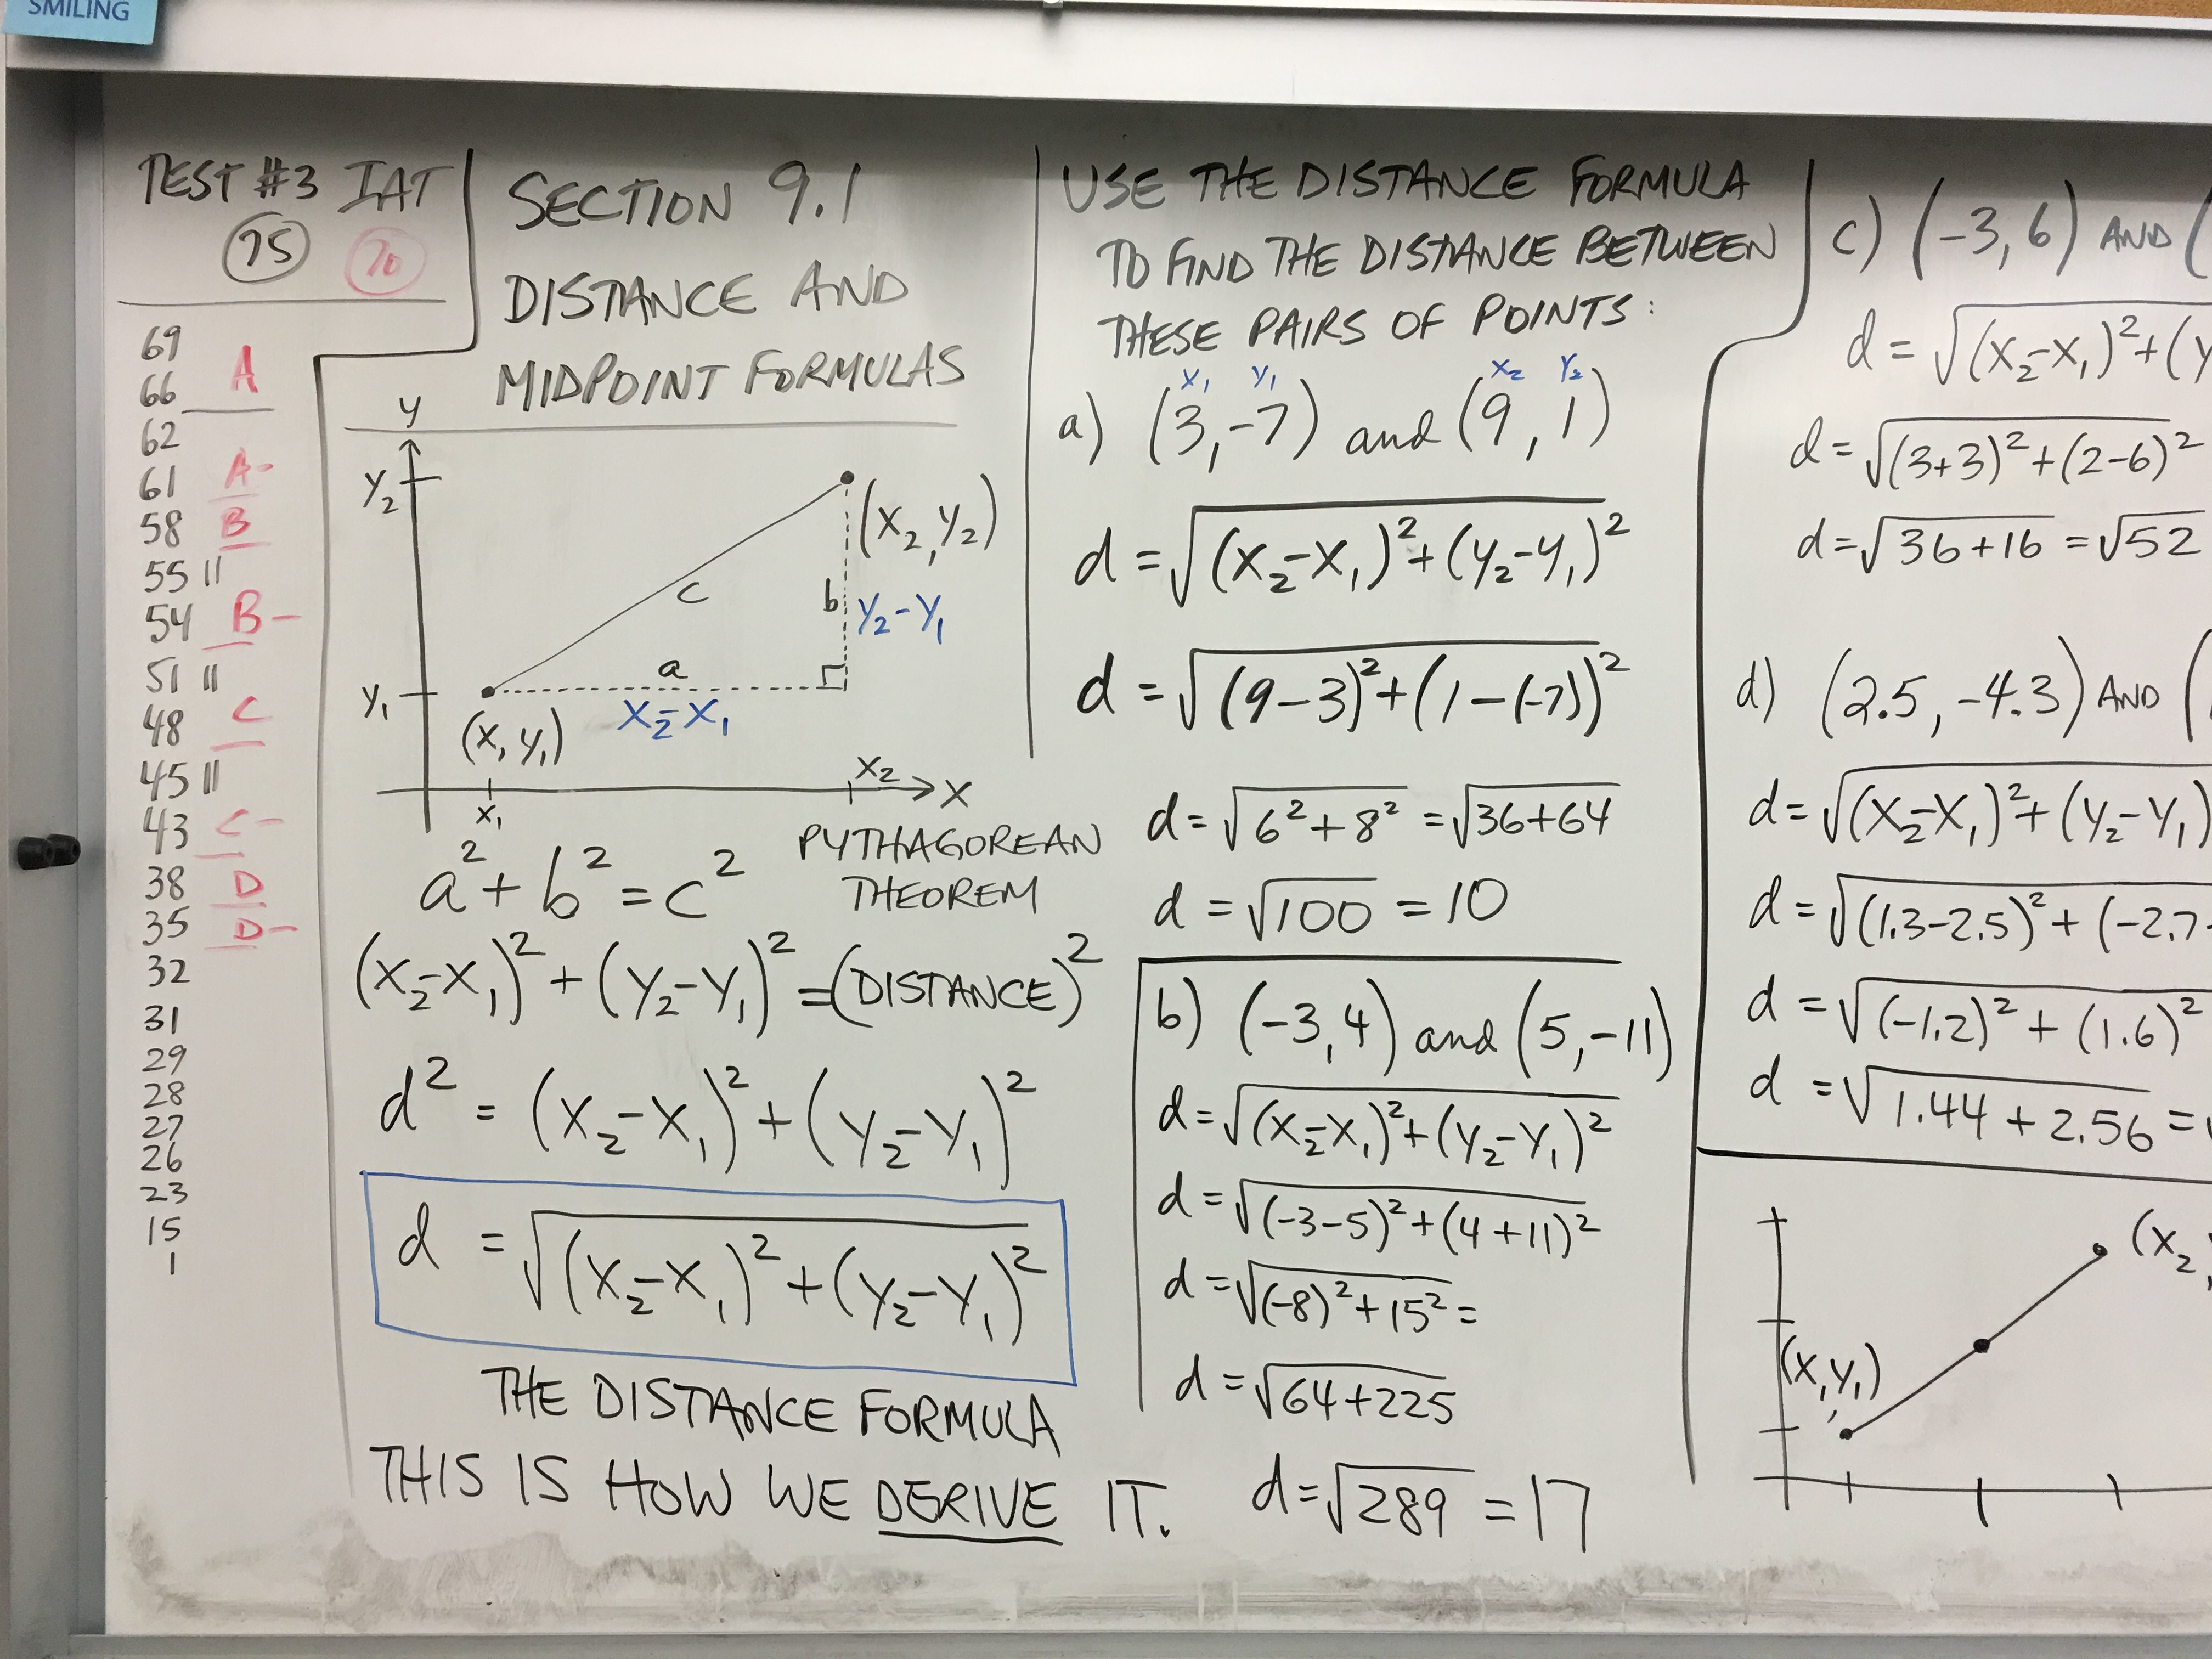 SMILING
TEST #3 IAT
75 70
69
66 A
62
61 A-
58 B
55 ||
54 B-
51 ||
48 C
45 ||
43 C-
38 D
35 D-
32
31
29
28
27
26
23
15
1
SECTION 9.1
DISTANCE AND
MIDPOINT FORMULAS
y
y₂
(x₂, y₂)
c
b y₂-y₁
a
y₁
x₂-x₁
(x, y₁)
x₂
x
x₁
PYTHAGOREAN
THEOREM
a² + b² = c²
(x₂-x₁)² + (y₂-y₁)² = (DISTANCE)²
d² = (x₂-x₁)² + (y₂-y₁)²
d = √(x₂-x₁)² + (y₂-y₁)²
THE DISTANCE FORMULA
THIS IS HOW WE DERIVE IT.
USE THE DISTANCE FORMULA
TO FIND THE DISTANCE BETWEEN
THESE PAIRS OF POINTS:
x₁ y₁ x₂ y₂
a) (3,-7) and (9, 1)
d = √(x₂-x₁)² + (y₂-y₁)²
d = √(9-3)² + (1-(-7))²
d = √6² + 8² = √36+64
d = √100 = 10
b) (-3,4) and (5,-11)
d = √(x₂-x₁)² + (y₂-y₁)²
d = √(-3-5)² + (4+11)²
d = √(-8)² + 15² =
d = √64+225
d = √289 = 17
c) (-3,6) AND (
d = √(x₂-x₁)² + (y
d = √(3+3)² + (2-6)²
d = √36+16 = √52
d) (2.5, -4.3) AND (
d = √(x₂-x₁)² + (y₂-y₁)
d = √(1.3-2.5)² + (-2.7-
d = √(-1.2)² + (1.6)²
d = √1.44 + 2.56 = √
(x₂,
(x, y₁)